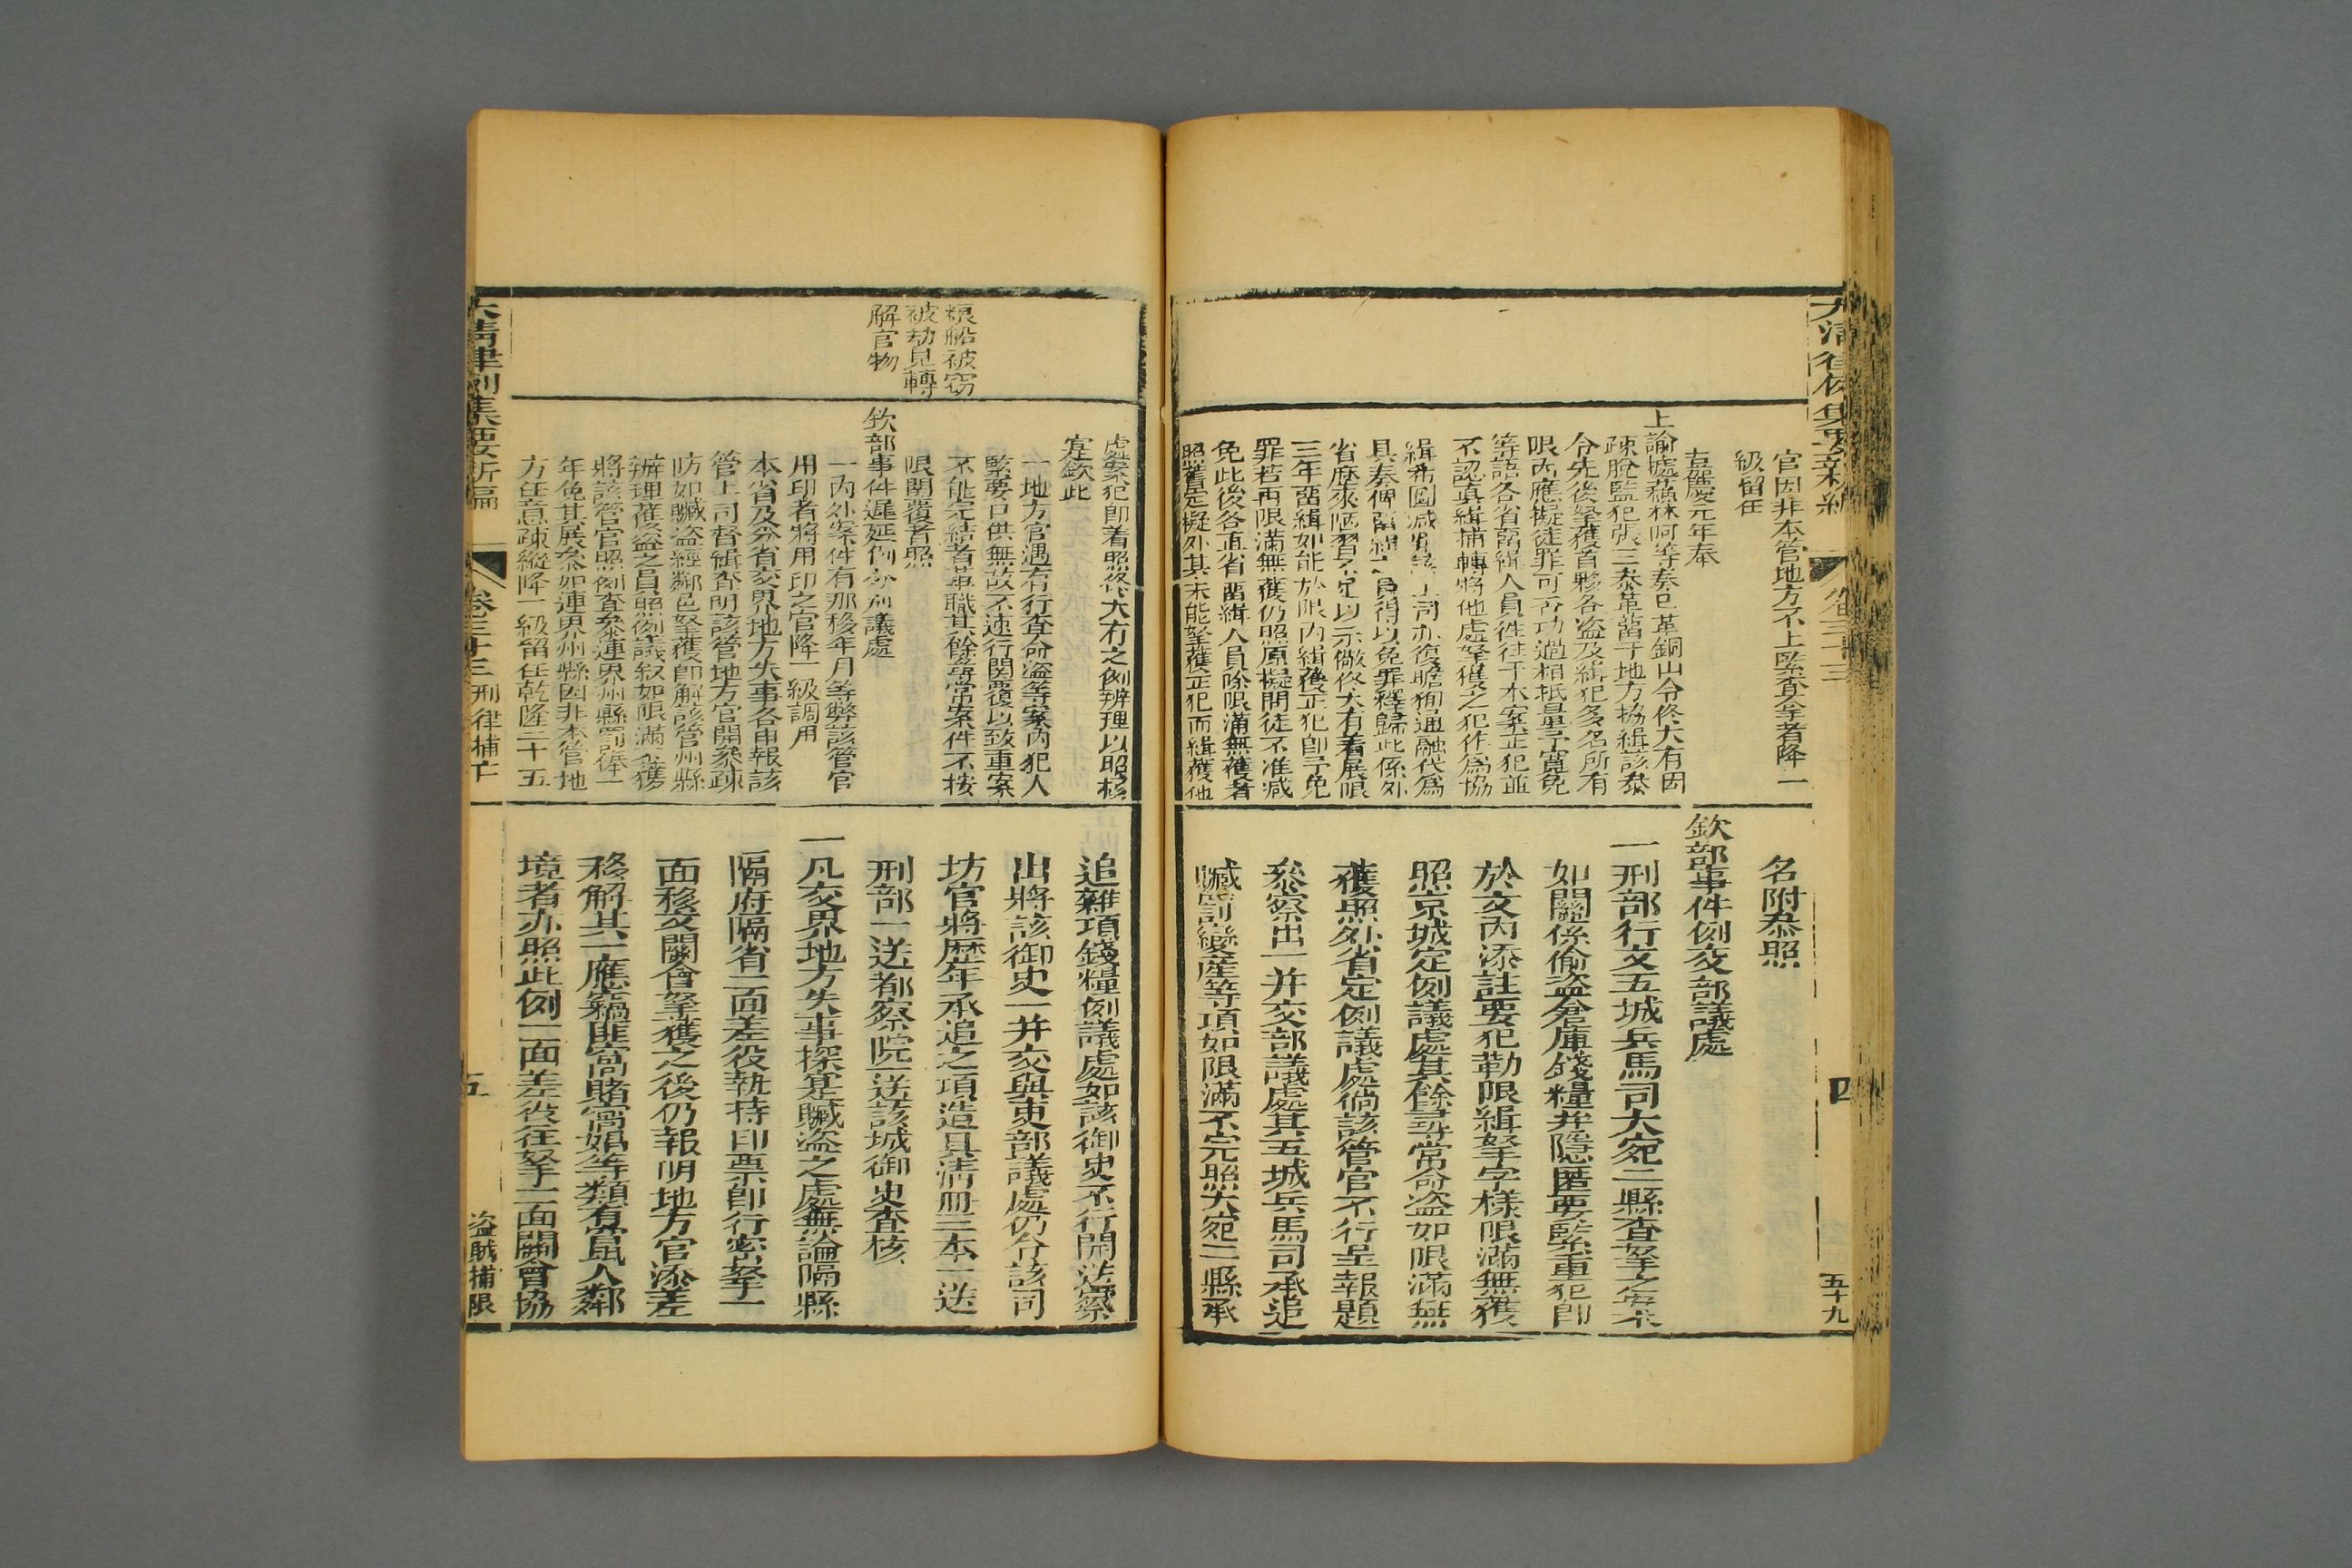 大清律例集要新編
卷三十三
四
五十九
官因非本管地方不上緊查拏者降一
級留任
嘉慶元年奉
上諭據蘓林阿等奏已革銅山令佟大有因
疎脫監犯張三泰革留于地方協緝該泰
令先後拏獲首夥各盗及緝犯多名所有
限內應擬徒罪可否功過相抵量予寬免
等語各省留緝人員徃徃于本案正犯並
不認真緝捕轉將他處拏獲之犯作為協
緝希圖减罪該上司亦復瞻狥通融代為
具奏俾留緝之員得以免罪釋歸此係外
省歷來陋習不足以示儆佟大有着展限
三年留緝如能於限內緝獲正犯卽予免
罪若再限滿無獲仍照原擬問徒不准减
免此後各直省留緝人員除限滿無獲者
照舊定擬外其未能拏獲正犯而緝獲他
名附叅照
欽部事件例交部議處
一刑部行文五城兵馬司大宛二縣查拏之案
如關係偷盗倉庫錢糧并隱匿要緊重犯卽
於文內添註要犯勒限緝拏字樣限滿無獲
照京城定例議處其餘尋常命盗如限滿無
獲照外省定例議處倘該管官不行呈報題
叅察出一并交部議處其五城兵馬司承追
贓罰變產等項如限滿不完照大宛二縣承
粮船被窃
被劫見轉
解官物
處案犯卽着照佟大有之例辦理以昭核
寔欽此
一地方官遇有行查命盗等案內犯人
緊要口供無故不速行関覆以致重案
不能完結者革職其餘尋常案件不按
限関覆者照
欽部事件遲延例分别議處
一內外案件有那移年月等弊該管官
用印者將用印之官降一級調用
本省及分省交界地方失事各申報該
管上司督緝查明該管地方官開叅疎
防如贓盗經鄰邑拏獲卽解該管州縣
辦理獲盗之員照例議敘如限滿不獲
將該管官照例查叅連界州縣罰俸一
年免其展叅如連界州縣因非本管地
方任意疎縱降一級留任乾隆二十五
追雜項錢糧例議處如該御史不行開送察
出將該御史一并交與吏部議處仍令該司
坊官將歷年承追之項造具清册三本一送
刑部一送都察院一送該城御史查核
一凡交界地方失事探寔贓盗之處無論隔縣
隔府隔省一面差役執持印票卽行密拏一
面移文關會拏獲之後仍報明地方官添差
移解其一應竊匪窩賭窩娼等類有當凮入鄰
境者亦照此例一面差役往拏一面關會協
大清律例集要新編
卷三十三 刑律捕亡
五
盗賊捕限